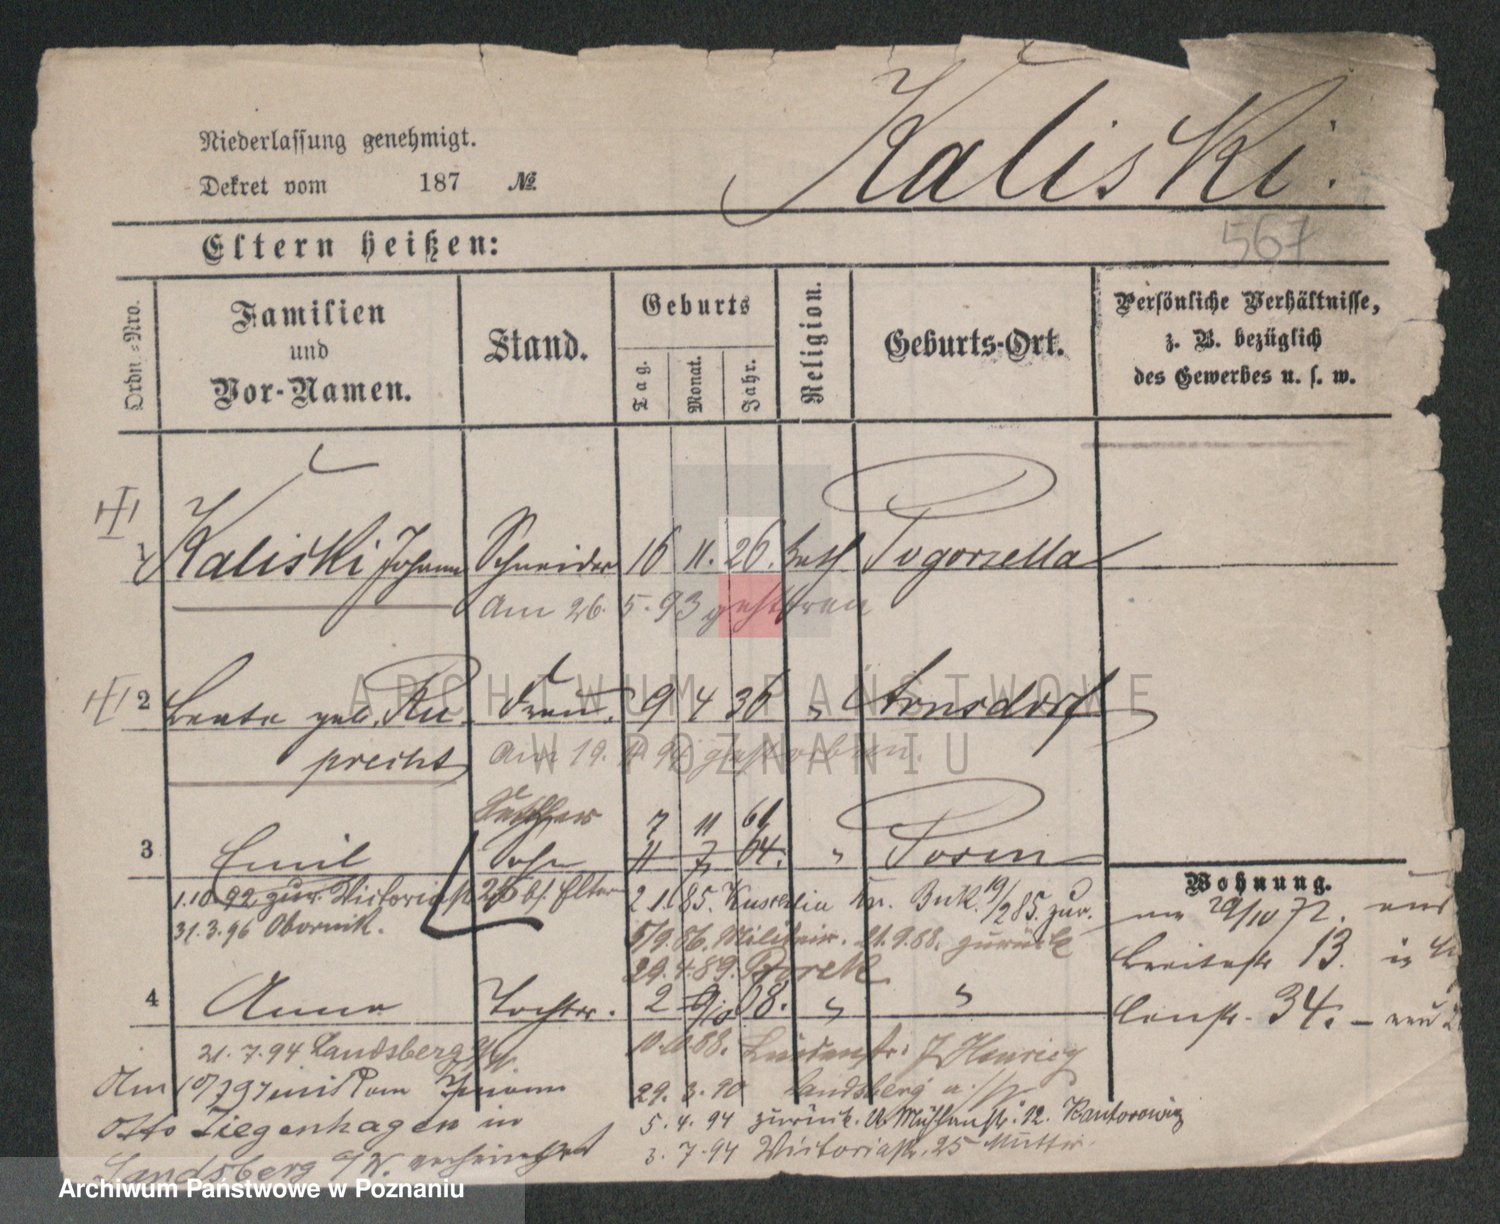 Kaliski.
Niederlassung genehmigt.
Dekret vom 187 №
567
Eltern heißen:
Ordn.-Nro.
Familien
und
Vor-Namen.
Stand.
Geburts
Tag.
Monat.
Jahr.
Religion.
Geburts-Ort.
Persönliche Verhältnisse,
z. B. bezüglich
des Gewerbes u. s. w.
1 Kaliski Johann Schneider 16 11. 26. kath. Pogorzella
am 26. 5. 93 gestorben
2 Beate geb. Ru- Frau. 9 4 36 " Arnsdorf
precht am 19. gestorben.
7 11 61
3 Emil Sohn 11 7 64. " Posen
1.10.92 zur Victoriastr 25 b/. Eltern 2.1.85. Buk. 19/2 85. zur.
31.3.96 Obornik. 5/9.86. Militair. 21.9.88. zurück
29.4.89. Borek
4 Anna Tochter. 2 9/10 68. " "
21.7.94 Landsberg a/W. 10.10.88.
29. 3. 90 Landsberg a./W
Otto Ziegenhagen in 5. 4. 94 zurück. Mühlenstr. 12. Kantorowicz
Landsberg a/W. verheirathet 3. 7. 94 Victoriastr. 25 Mutter.
Wohnung.
29/10 72.
Breitestr 13.
34.
ARCHIWUM PAŃSTWOWE
W POZNANIU
Archiwum Państwowe w Poznaniu